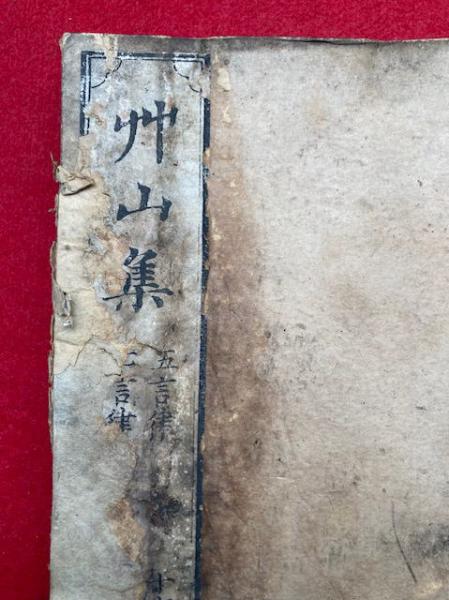 艸山集
五言律
言律